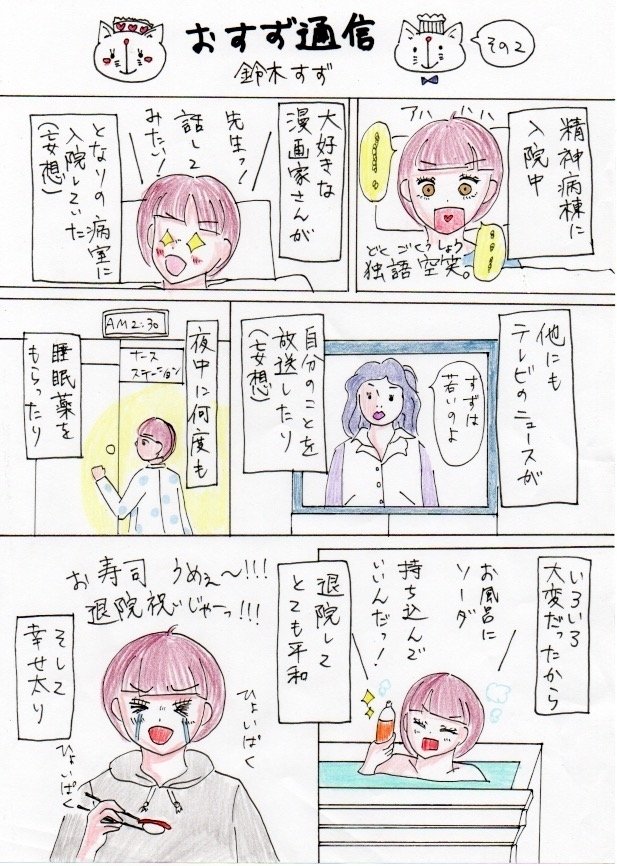 おすず通信
その2
鈴木すず
精神病棟に
入院中
アハハハ
どくごくうしょう
独語空笑。
大好きな
漫画家さんが
先生っ!
話して
みたい!
となりの病室に
入院していた
(妄想)
他にも
テレビのニュースが
すずは
若いのよ
自分のことを
放送したり
(妄想)
AM2:30
ナース
ステーション
夜中に何度も
睡眠薬を
もらったり
いろいろ
大変だったから
お風呂に
ソーダ
持ち込んで
いいんだっ!
退院して
とても平和
お寿司うめぇ〜!!!
退院祝いじゃーっ!!!
そして
幸せ太り
ひょいぱく
ひょいぱく